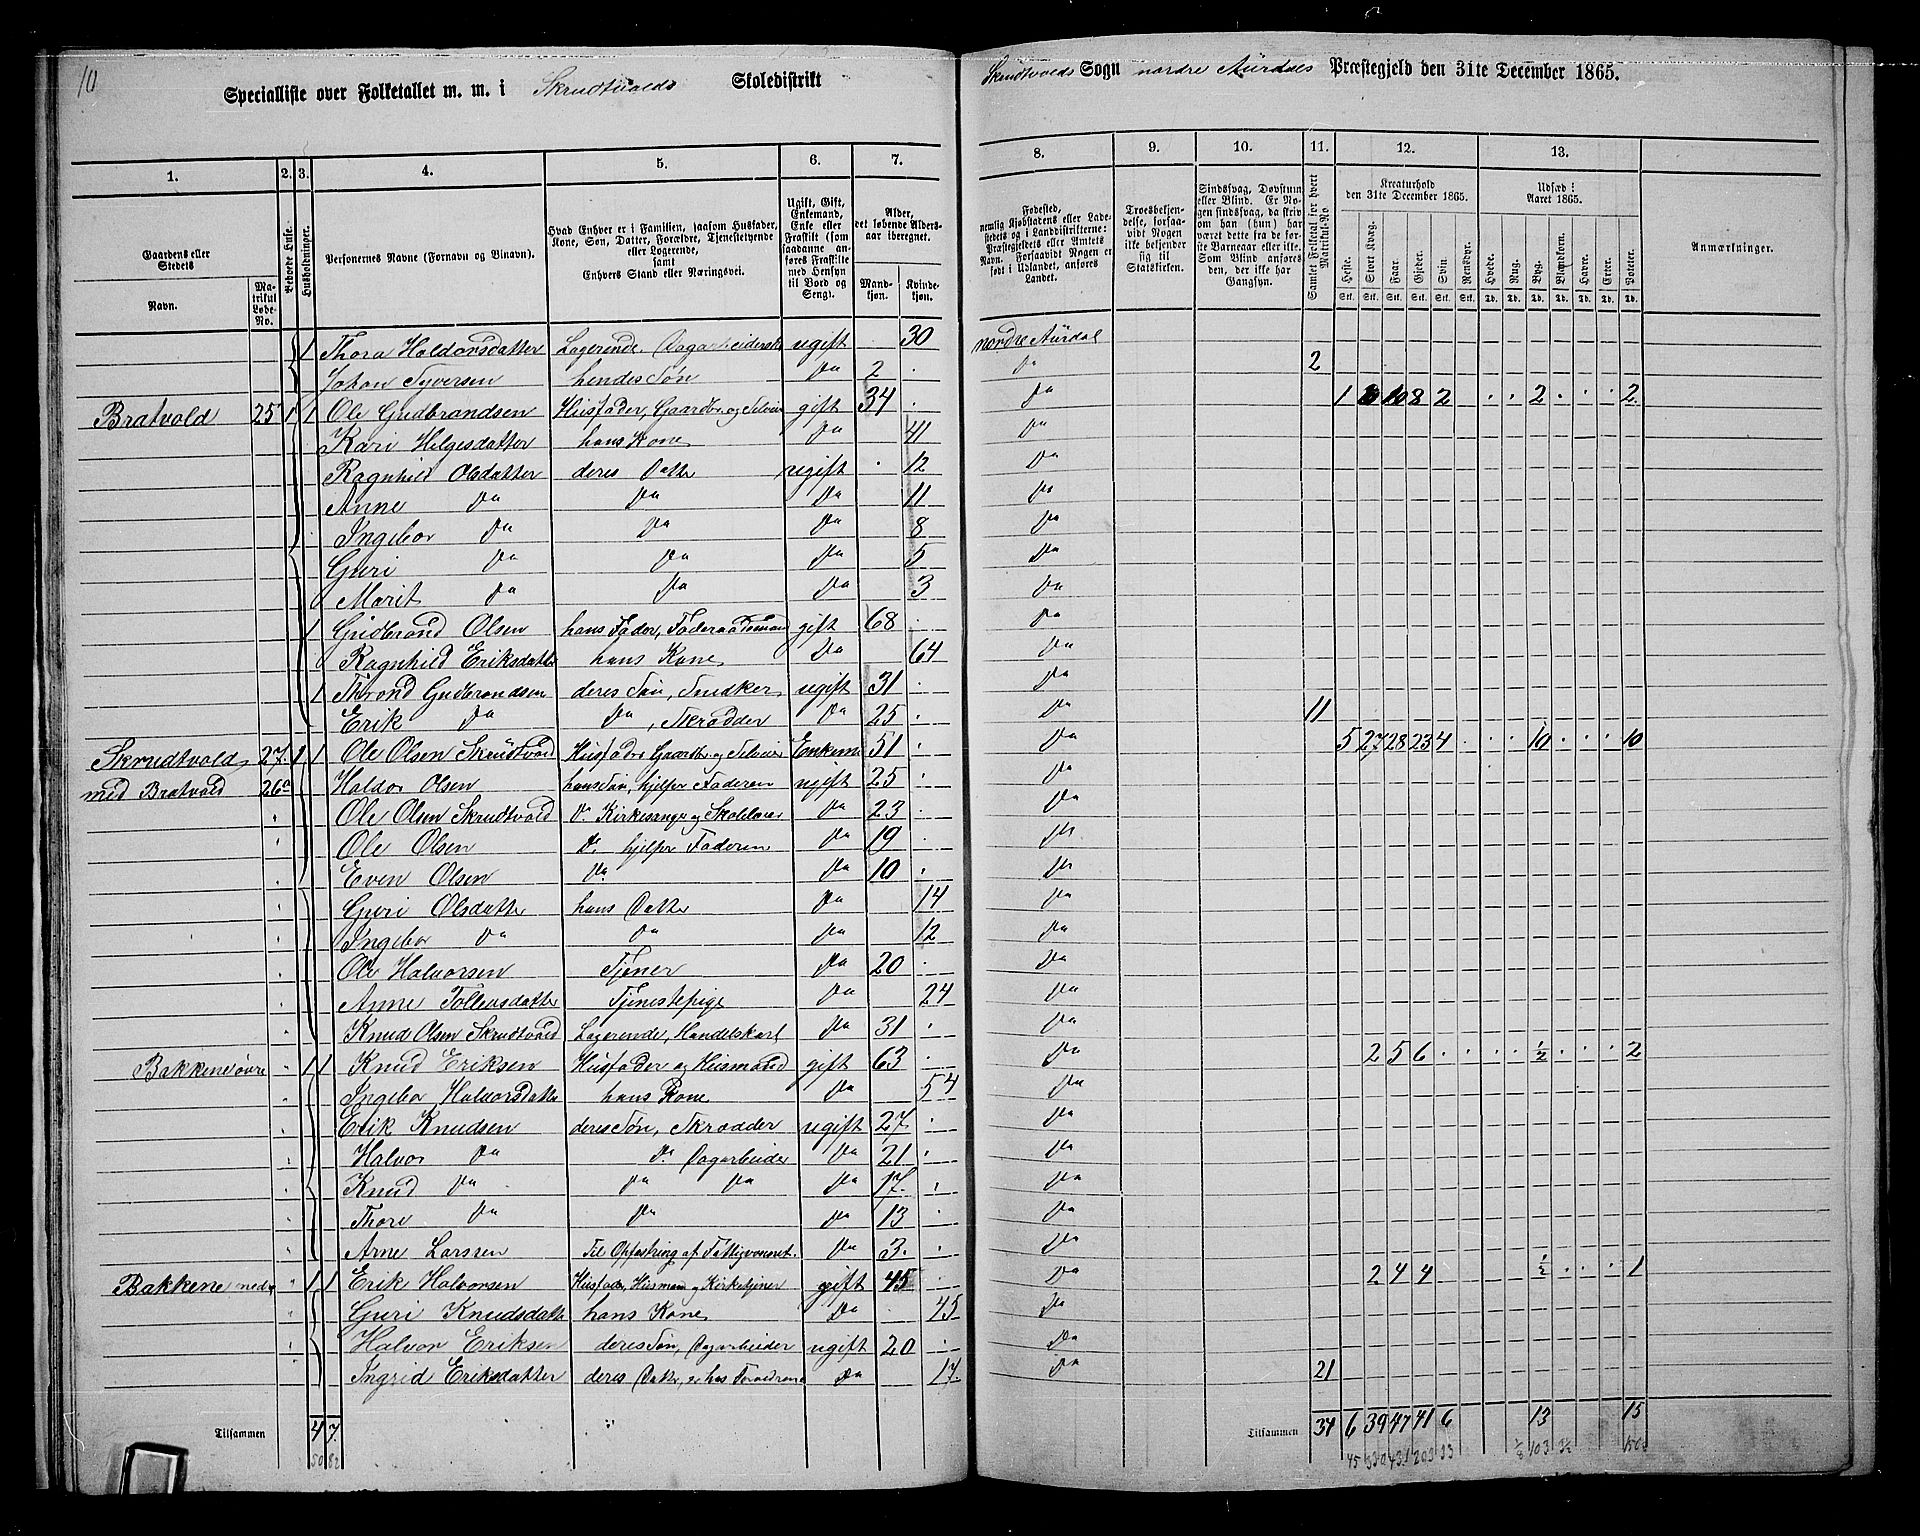 10
Specialliste over Folketallet m. m. i Skrudtvolds Skoledistrikt
Skrudtvolds Sogn nordre Aurdals Præstegjeld den 31te December 1865.
1. 2. 3. 4. 5. 6. 7. 8. 9. 10. 11. 12. 13.
Gaardens eller Stedets
Navn.
Matrikul Løbe-No.
Beboede Huse.
Husholdninger.
Personernes Navne (Fornavn og Binavn).
Hvad Enhver er i Familien, saasom Husfader, Kone, Søn, Datter, Forældre, Tjenestetyende eller Logerende, samt Enhvers Stand eller Næringsvei.
Ugift, Gift, Enkemand, Enke eller Fraskilt (som saadanne anføres Fraskilte med Hensyn til Bord og Seng).
Alder, det løbende Aldersaar iberegnet.
Mandkjøn. Kvindekjøn.
Fødested, nemlig Kjøbstadens eller Ladestedets og i Landdistrikterne: Præstegjeldets eller Amtets Navn. Forsaavidt Nogen er født i Udlandet, anføres Landet.
Troesbekjendelse, forsaavidt Nogen ikke bekjender sig til Statskirken.
Sindssvag, Døvstum eller Blind. Er Nogen sindssvag, da skrives om han (hun) har været dette fra de første Barneaar eller ikke. Som Blind anføres den, der ikke har Gangsyn.
Samlet Folketal for hvert Matrikuls-No.
Kreaturhold den 31te December 1865.
Heste. Stort Kvæg. Faar. Gjeder. Svin. Rensdyr.
Udsæd i Aaret 1865.
Hvede. Rug. Byg. Blandkorn. Havre. Erter. Poteter.
Anmærkninger.
1 Thora Haldorsdatter Logerende, Dagarbeiderske ugift 30 nordre Aurdal
Johan Syversen hendes Søn Do 2 Do 2
Bratvold 25 1 1 Ole Gudbrandsen Husfader, Gaardbr. og Selveier gift 34 Do 1 8 10 8 2 2 2
Kari Helgesdatter hans Kone Do 41 Do
Ragnhild Olsdatter deres Datter ugift 12 Do
Anne Do Do Do 11 Do
Ingebor Do Do Do 8 Do
Guri Do Do Do 5 Do
Marit Do Do Do 3 Do
1 Gudbrand Olsen hans Fader, Føderaadsmand gift 68 Do
Ragnhild Eriksdatter hans Kone Do 64 Do
1 Thrond Gudbrandsen deres Søn, Snedker ugift 31 Do
Erik Do Do, Skrædder Do 25 Do 11
Skrudtvold 27 1 1 Ole Olsen Skrudtvold Husfader Gaardbr. og Selveier Enkem. 51 Do 5 27 28 23 4 10 10
med Bratvold 26a Haldor Olsen hans Søn, hjelper Faderen ugift 25 Do
Ole Olsen Skrudtvold Do Kirkesanger og Skolelærer Do 23 Do
Ole Olsen Do hjelper Faderen Do 19 Do
Even Olsen Do Do 10 Do
Guri Olsdatter hans Datter Do 14 Do
Ingebor Do Do Do 12 Do
Ole Halvorsen Tjener Do 20 Do
Anne Tollevsdatter Tjenestepige Do 24 Do
Knud Olsen Skrudtvold Logerende, Handelskarl Do 31 Do
Bakkene øvre 1 1 Knud Eriksen Husfader og Husmand gift 63 Do 2 5 6 ½ 2
Ingebor Halvorsdatter hans Kone Do 54 Do
Erik Knudsen deres Søn, Skrædder ugift 27 Do
Halvor Do Do Dagarbeider Do 21 Do
Knud Do Do Do Do 17 Do
Thore Do Do Do 13 Do
Arne Larssen Til Opfostring af Fattigvæsenet Do 3 Do
Bakkene nedre 1 1 Erik Halvorsen Husfader, Husmand og Kirketjener gift 45 Do 2 4 4 ½ 1
Guri Knudsdatter hans Kone Do 45 Do
Halvor Eriksen deres Søn, Dagarbeider ugift 20 Do
Ingrid Eriksdatter deres Datter, er hos Forældrene Do 17 Do 21
Tilsammen 4 7 Tilsammen 34 6 39 47 41 6 13 15
50 82